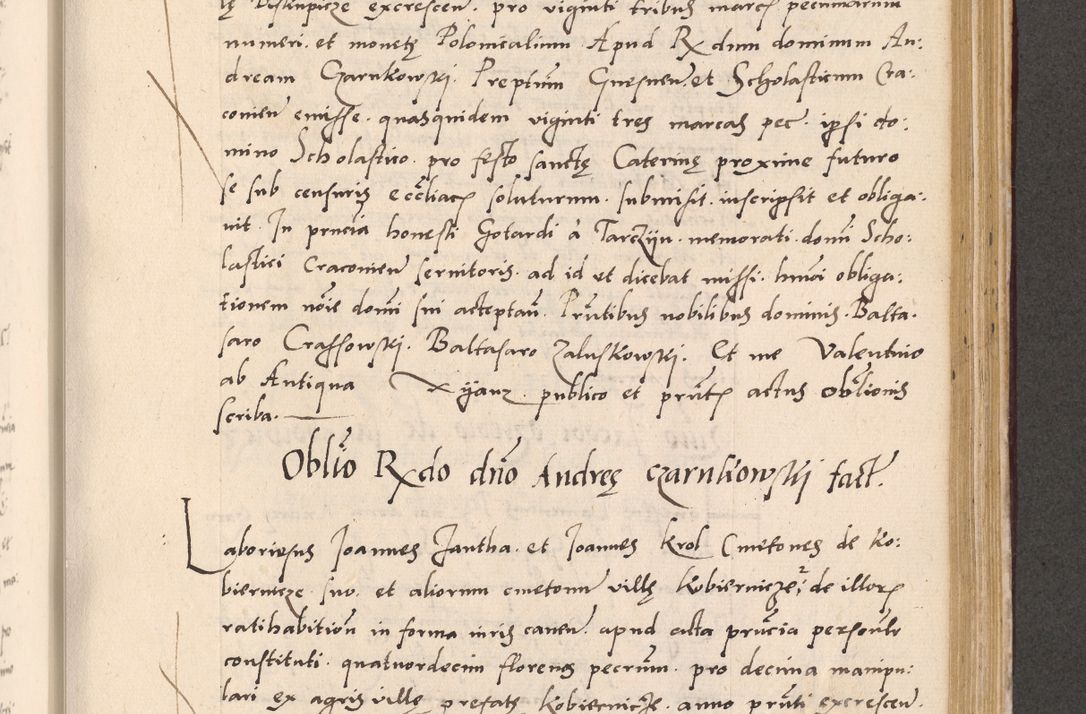 lę Biskupicze excrescen. pro viginti tribus marcis pecuniarum
numeri et monetę Polonicalium Apud Rxdum dominum An:
dream Czarnkowski. Preptum Gnesnen. et Scholasticum Cra:
covien emisse. quasquidem viginti tres marcas pec. ipsi do:
mino Scholastico pro festo sanctę Caterinę proxime futuro
se sub censuris ecclīacis soluturum. submisit. inscripsit et obliga:
vit. In prncia honesti Gotardi à Tarczijn. memorati domi Scho:
lastici Cracovien servitoris. ad id et dicebat missi. hmoi obliga:
tionem nōie domi sui acceptan. Prntibus nobilibus dominis. Balta.
saro Crassowski. Baltasaro Zaluskowski. Et me Valentino
ab Antiqua Rxijanz. publico et prnti actus oblionis
scriba.
Oblio Rxdo dno Andreę Czarnkowskij fact.
Laboriosus Joannes Jantha. et Joannes Krol Cmetones de Ko:
biernicze suo. et aliorum cmetonu villę Kobiernicze, de illor
ratihabition in forma iuris caven. apud acta prncia personlr
constituti. quatuordecim florenos pecrum. pro decima manipu:
lari ex agris villę prefatę Kobiernicze. anno prnti excrescen.